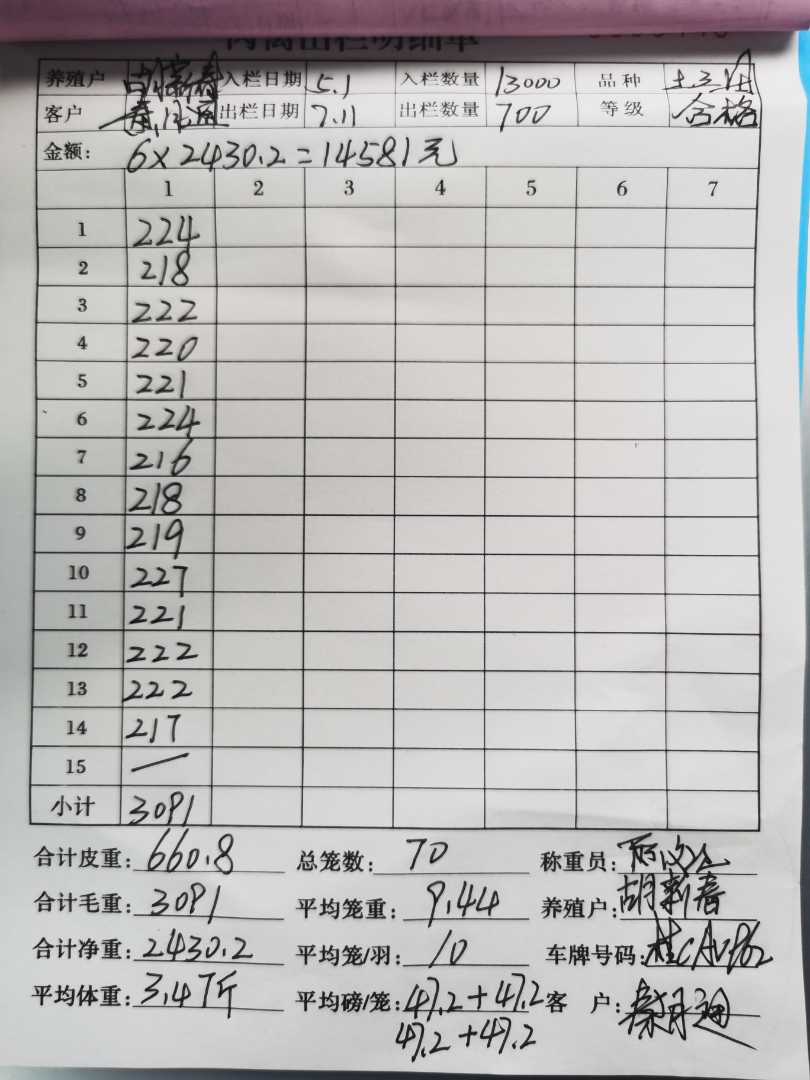 肉禽出栏明细单
养殖户 胡新春 入栏日期 5.1 入栏数量 13000 品种 土三
客户 秦 出栏日期 7.11 出栏数量 700 等级 合格
金额: 6×2430.2=14581元
1 2 3 4 5 6 7
1 224
2 218
3 222
4 220
5 221
6 224
7 216
8 218
9 219
10 227
11 221
12 222
13 222
14 217
15 —
小计 3091
合计皮重: 660.8 总笼数: 70 称重员:
合计毛重: 3091 平均笼重: 9.44 养殖户: 胡新春
合计净重: 2430.2 平均笼/羽: 10 车牌号码:
平均体重: 3.47斤 平均磅/笼: 47.2+47.2 客 户: 秦
47.2+47.2